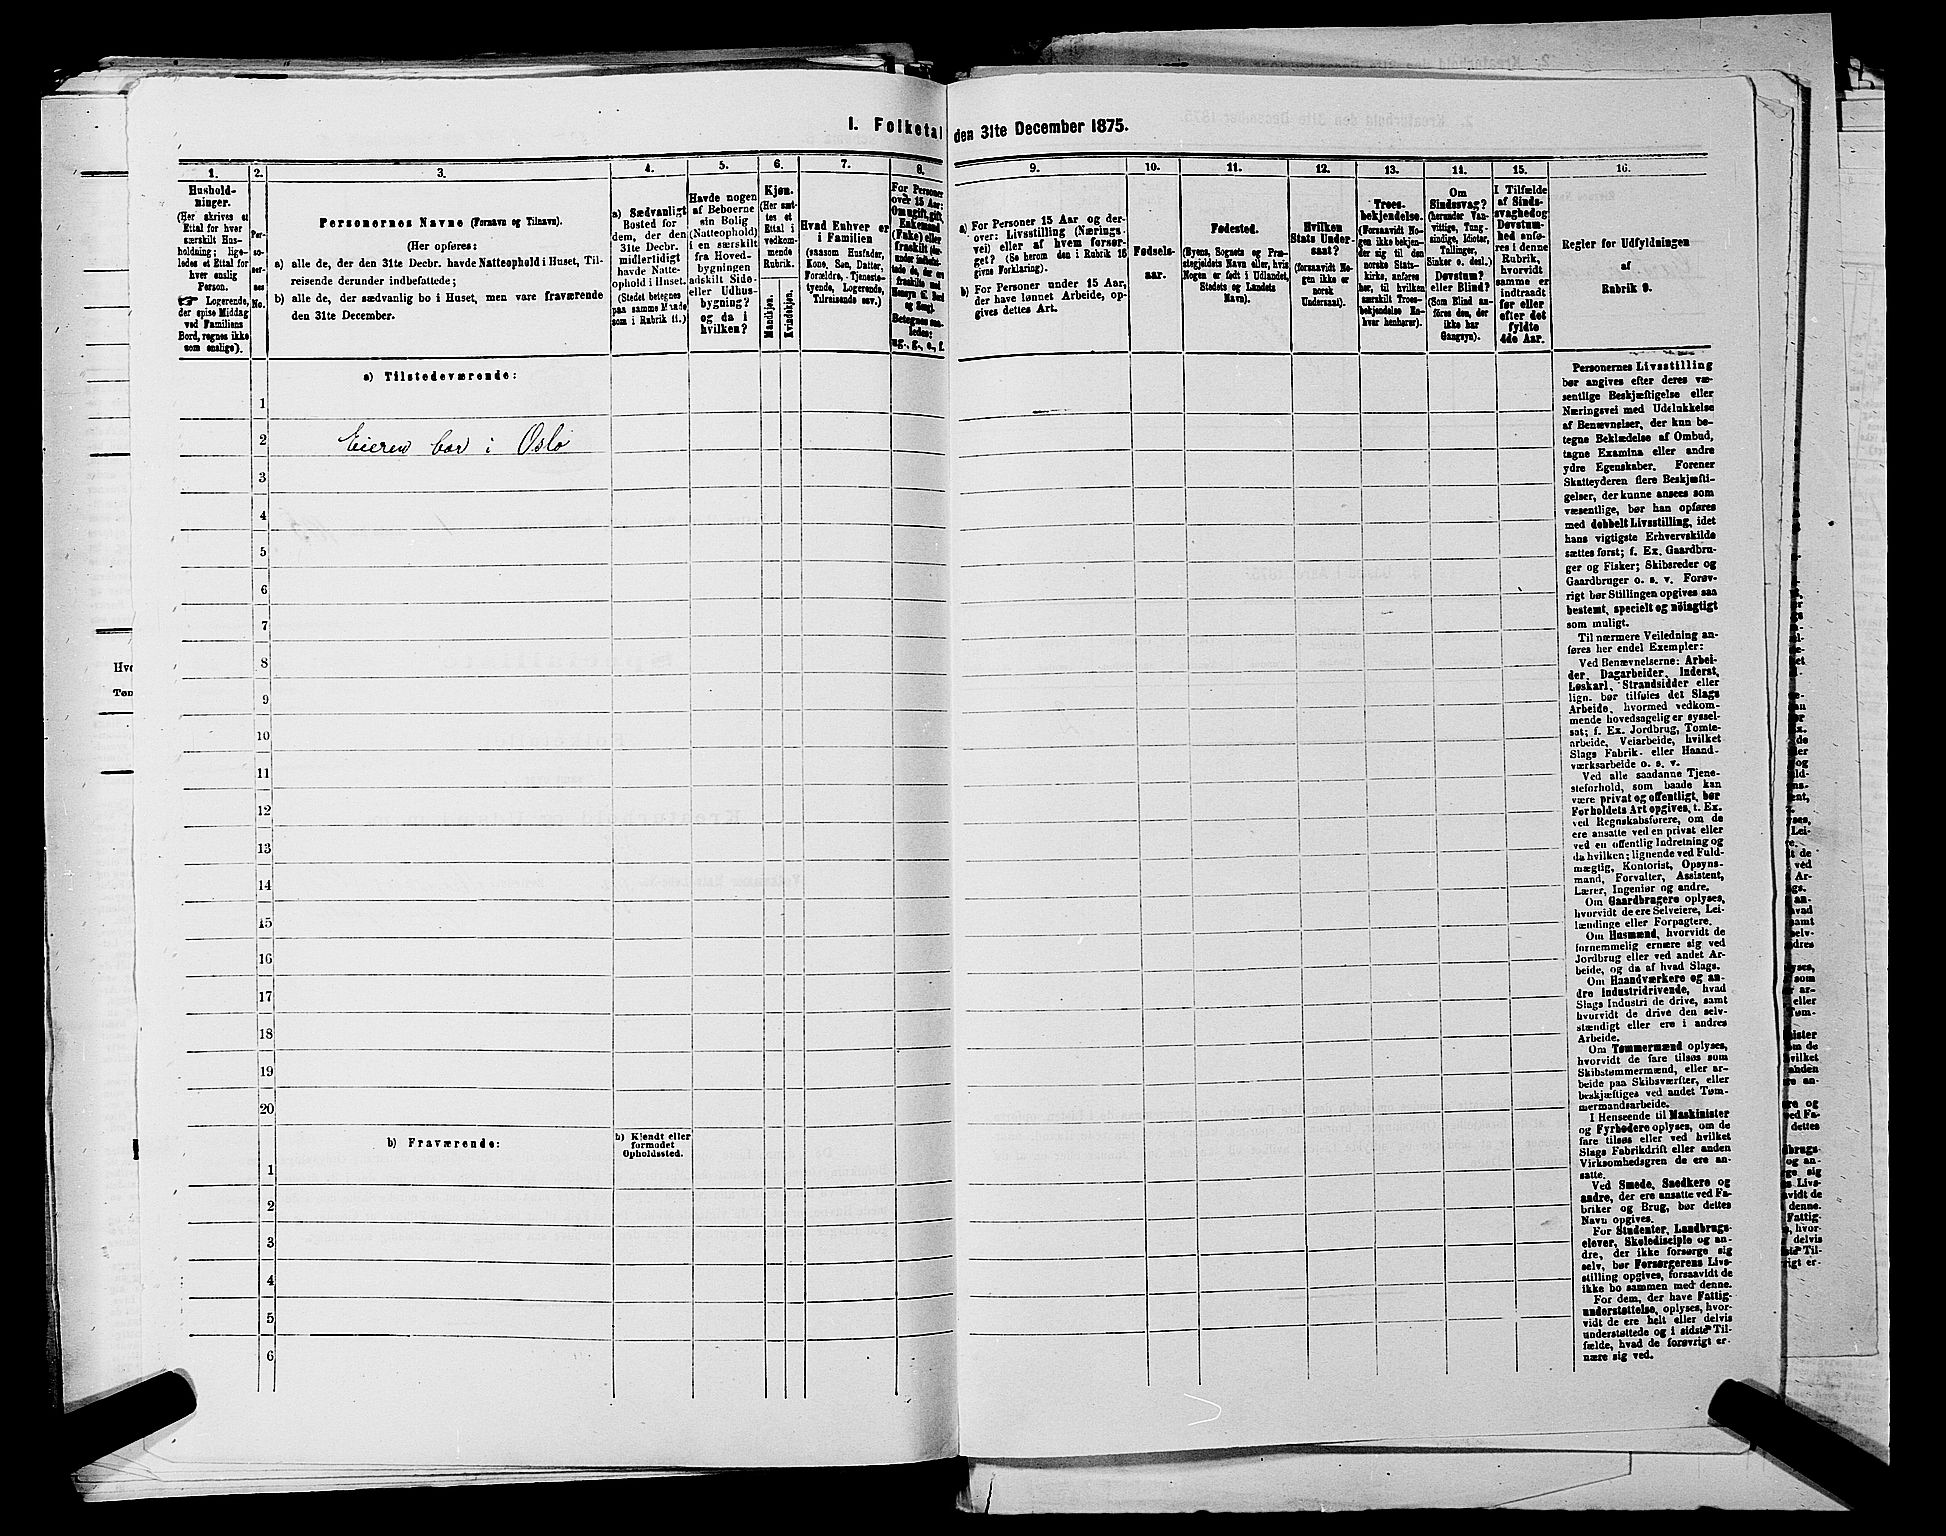 1. Folketal den 31te December 1875.
1.
Hushold-
ninger.
(Her skrives et
Ettal for hver
særskilt Hus-
holdning; lige-
ledes et Ettal for
hver enslig
Person.
☞ Logerende,
der spise Middag
ved Familiens
Bord, regnes ikke
som enslige).
2.
Per-
so-
ner-
nes
No.
3.
Personernes Navne (Fornavn og Tilnavn).
(Her opføres:
a) alle de, der den 31te Decbr. havde Natteophold i Huset, Til-
reisende derunder indbefattede;
b) alle de, der sædvanlig bo i Huset, men vare fraværende
den 31te December.
4.
a) Sædvanligt
Bosted for
dem, der den
31te Decbr.
midlertidigt
havde Natte-
ophold i Huset.
(Stedet betegnes
paa samme Maade
som i Rubrik 11.)
5.
Havde nogen
af Beboerne
sin Bolig
(Natteophold)
i en særskilt
fra Hoved-
bygningen
adskilt Side-
eller Udhus-
bygning?
og da i
hvilken?
6.
Kjøn.
(Her sæt-
tes et
Ettal i
vedkom-
mende
Rubrik.)
Mandkjøn.
Kvindekjøn.
7.
Hvad Enhver er
i Familien
(saasom Husfader,
Kone, Søn, Datter,
Forældre, Tjeneste-
tyende, Logerende,
Tilreisende osv.)
8.
For Personer
over 15 Aar:
Om ugift, gift,
Enkemand
(Enke) eller
fraskilt
Betegnes saa-
ledes:
ug., g., e., f.
9.
a) For Personer 15 Aar og der-
over: Livsstilling (Nærings-
vei) eller af hvem forsør-
get? (Se herom den i Rubrik 16
givne Forklaring).
b) For Personer under 15 Aar,
der have lønnet Arbeide, op-
gives dettes Art.
10.
Fødsels-
aar.
11.
Fødested.
(Byens, Sognets og Præ-
stegjeldets Navn eller, hvis
Nogen er født i Udlandet,
Stedets og Landets
Navn).
12.
Hvilken
Stats Under-
saat?
(forsaavidt No-
gen ikke er
norsk
Undersaat).
13.
Troes-
bekjendelse.
(Forsaavidt No-
gen ikke bekjen-
der sig til den
norske Stats-
kirke, anføres
her, til hvilken
særskilt Troes-
bekjendelse En-
hver henhører).
14.
Om
Sindssvag?
(herunder Van-
vittige, Tung-
sindige, Idioter,
Tullinger,
Sinker o. desl.)
Døvstum?
eller Blind?
(Som Blind an-
føres den, der
ikke har
Gangsyn).
15.
I Tilfælde
af Sinds-
svaghed og
Døvstum-
hed anfø-
res i denne
Rubrik,
hvorvidt
samme er
indtraadt
før eller
efter det
fyldte
4de Aar.
16.
Regler for Udfyldningen
af
Rubrik 9.
a) Tilstedeværende:
1
2 Eieren bor i Oslo
3
4
5
6
7
8
9
10
11
12
13
14
15
16
17
18
19
20
b) Fraværende:
b) Kjendt eller
formodet
Opholdssted.
1
2
3
4
5
6
Personernes Livsstilling
bør angives efter deres væ-
sentlige Beskjæftigelse eller
Næringsvei med Udelukkelse
af Benævnelser, der kun be-
tegne Beklædelse af Ombud,
tagne Examina eller andre
ydre Egenskaber. Forener
Skatteyderen flere Beskjæfti-
gelser, der kunne ansees som
væsentlige, bør han opføres
med dobbelt Livsstilling, idet
hans vigtigste Erhvervskilde
sættes først; f. Ex. Gaardbru-
ger og Fisker; Skibsreder og
Gaardbruger o. s. v. Forøv-
rigt bør Stillingen opgives saa
bestemt, specielt og nöiagtigt
som muligt.
Til nærmere Veiledning an-
føres her endel Exempler:
Ved Benævnelserne: Arbei-
der, Dagarbeider, Inderst,
Løskarl, Strandsidder eller
lign. bør tilføies det Slags
Arbeide, hvormed vedkom-
mende hovedsagelig er syssel-
sat; f. Ex. Jordbrug, Tomte-
arbeide, Veiarbeide, hvilket
Slags Fabrik- eller Haand-
værksarbeide o. s. v.
Ved alle saadanne Tjene-
steforhold, som baade kan
være privat og offentligt, bør
Forholdets Art opgives, t. Ex.
ved Regnskabsførere, om de
ere ansatte ved en privat eller
ved en offentlig Indretning og
da hvilken; lignende ved Fuld-
mægtig, Kontorist, Opsyns-
mand, Forvalter, Assistent,
Lærer, Ingeniør og andre.
Om Gaardbrugere oplyses,
hvorvidt de ere Selveiere, Lei-
lændinge eller Forpagtere.
Om Husmænd, hvorvidt de
fornemmelig ernære sig ved
Jordbrug eller ved andet Ar-
beide, og da af hvad Slags.
Om Haandværkere og an-
dre Industridrivende, hvad
Slags Industri de drive, samt
hvorvidt de drive den selv-
stændigt eller ere i andres
Arbeide.
Om Tømmermænd oplyses,
hvorvidt de fare tilsøs som
Skibstømmermænd, eller ar-
beide paa Skibsværfter, eller
beskjæftiges ved andet Tøm-
mermandsarbeide.
I Henseende til Maskinister
og Fyrbødere oplyses, om de
fare tilsøs eller ved hvilket
Slags Fabrikdrift eller anden
Virksomhedsgren de ere an-
satte.
Ved Smede, Snedkere og
andre, der ere ansatte ved Fa-
briker og Brug, bør dettes
Navn opgives.
For Studenter, Landbrugs-
elever, Skoledisciple og an-
dre, der ikke forsørge sig
selv, bør Forsørgerens Livs-
stilling opgives, forsaavidt de
ikke bo sammen med denne.
For dem, der have Fattig-
understøttelse, oplyses, hvor-
vidt de ere helt eller delvis
understøttede og i sidste Til-
fælde, hvad de forøvrigt er-
nære sig ved.